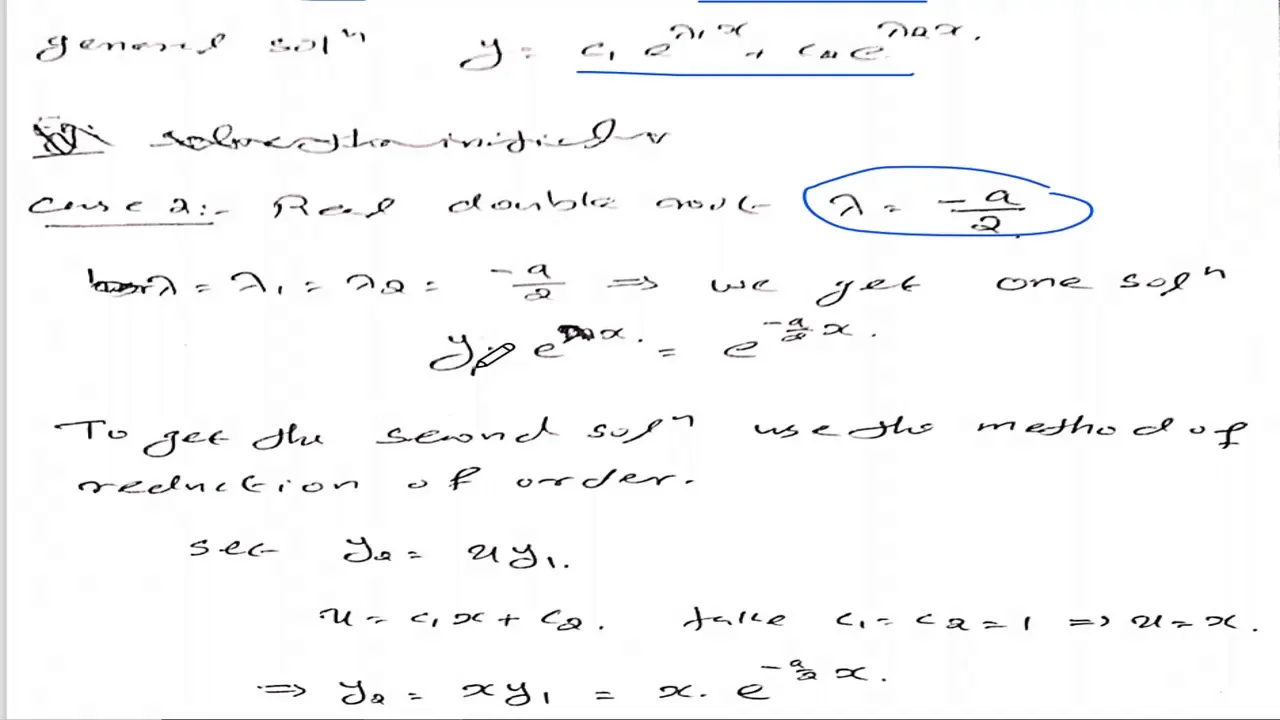 general solⁿ y = c₁ e^{λ₁x} + c₂ e^{λ₂x}.
Case 2:- Real double root λ = -a/2
λ = λ₁ = λ₂ = -a/2 ⇒ we get one solⁿ
y₁ = e^{λx}. = e^{-a/2 x}.
To get the second solⁿ use the method of
reduction of order.
set y₂ = uy₁.
u = c₁x + c₂. take c₁ = c₂ = 1 ⇒ u = x.
⇒ y₂ = xy₁ = x. e^{-a/2 x}.